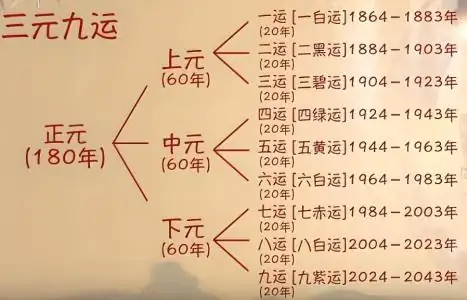 三元九运
正元
(180年)
上元
(60年)
一运 [一白运]1864-1883年
(20年)
二运 [二黑运]1884-1903年
(20年)
三运 [三碧运]1904-1923年
(20年)
中元
(60年)
四运 [四绿运]1924-1943年
(20年)
五运 [五黄运]1944-1963年
(20年)
六运 [六白运]1964-1983年
(20年)
下元
(60年)
七运 [七赤运]1984-2003年
(20年)
八运 [八白运]2004-2023年
(20年)
九运 [九紫运]2024-2043年
(20年)